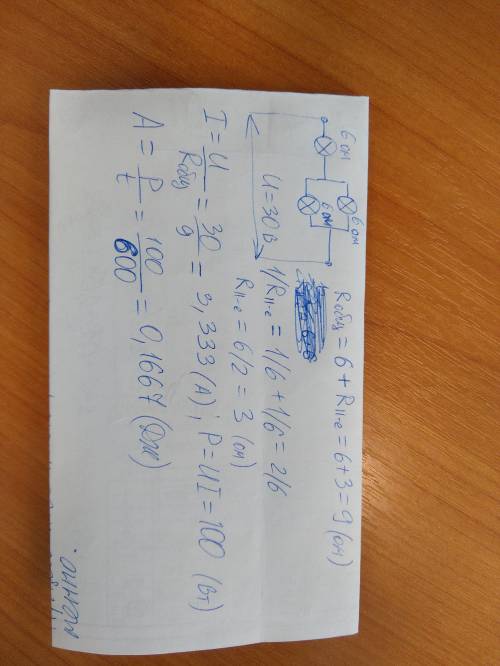 6 ом
6 ом
6 ом
U=30В
Rобщ = 6 + RII-е = 6+3 = 9 (ом)
1/RII-е = 1/6 + 1/6 = 2/6
RII-е = 6/2 = 3 (ом)
I = U/Rобщ = 30/9 = 3,333 (А) ; P=UI=100 (Вт)
A = P/t = 100/600 = 0,1667 (Дж)
можно.